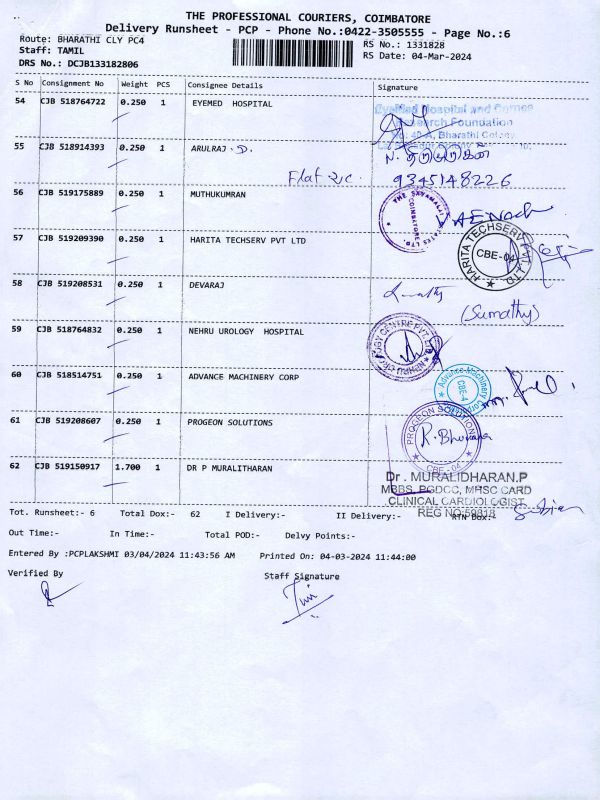 THE PROFESSIONAL COURIERS, COIMBATORE
Delivery Runsheet - PCP - Phone No.:0422-3505555 - Page No.:6
Route: BHARATHI CLY PC4
RS No.: 1331828
Staff: TAMIL
RS Date: 04-Mar-2024
DRS No.: DCJB133182806
S No Consignment No Weight PCS Consignee Details Signature
54 CJB 518764722 0.250 1 EYEMED HOSPITAL
EyeMed Hospital and Cornea
Research Foundation
Bharathi Colony
55 CJB 518914393 0.250 1 ARULRAJ . D.
Flat
9345148226
56 CJB 519175889 0.250 1 MUTHUKUMRAN
57 CJB 519209390 0.250 1 HARITA TECHSERV PVT LTD
HARITA TECHSERV PVT. LTD
CBE-04
58 CJB 519208531 0.250 1 DEVARAJ
(Sumathy)
59 CJB 518764832 0.250 1 NEHRU UROLOGY HOSPITAL
60 CJB 518514751 0.250 1 ADVANCE MACHINERY CORP
Advance Machinery Corp
CBE-4
61 CJB 519208607 0.250 1 PROGEON SOLUTIONS
PROGEON SOLUTIONS
R. Bhuvana
CBE - 04
62 CJB 519150917 1.700 1 DR P MURALITHARAN
Dr. MURALIDHARAN.P
MBBS, PGDCC, MHSC CARD
CLINICAL CARDIOLOGIST
REG NO:59818
Tot. Runsheet:- 6 Total Dox:- 62 I Delivery:- II Delivery:- RTN Dox:-
Out Time:- In Time:- Total POD:- Delvy Points:-
Entered By :PCPLAKSHMI 03/04/2024 11:43:56 AM Printed On: 04-03-2024 11:44:00
Verified By Staff Signature